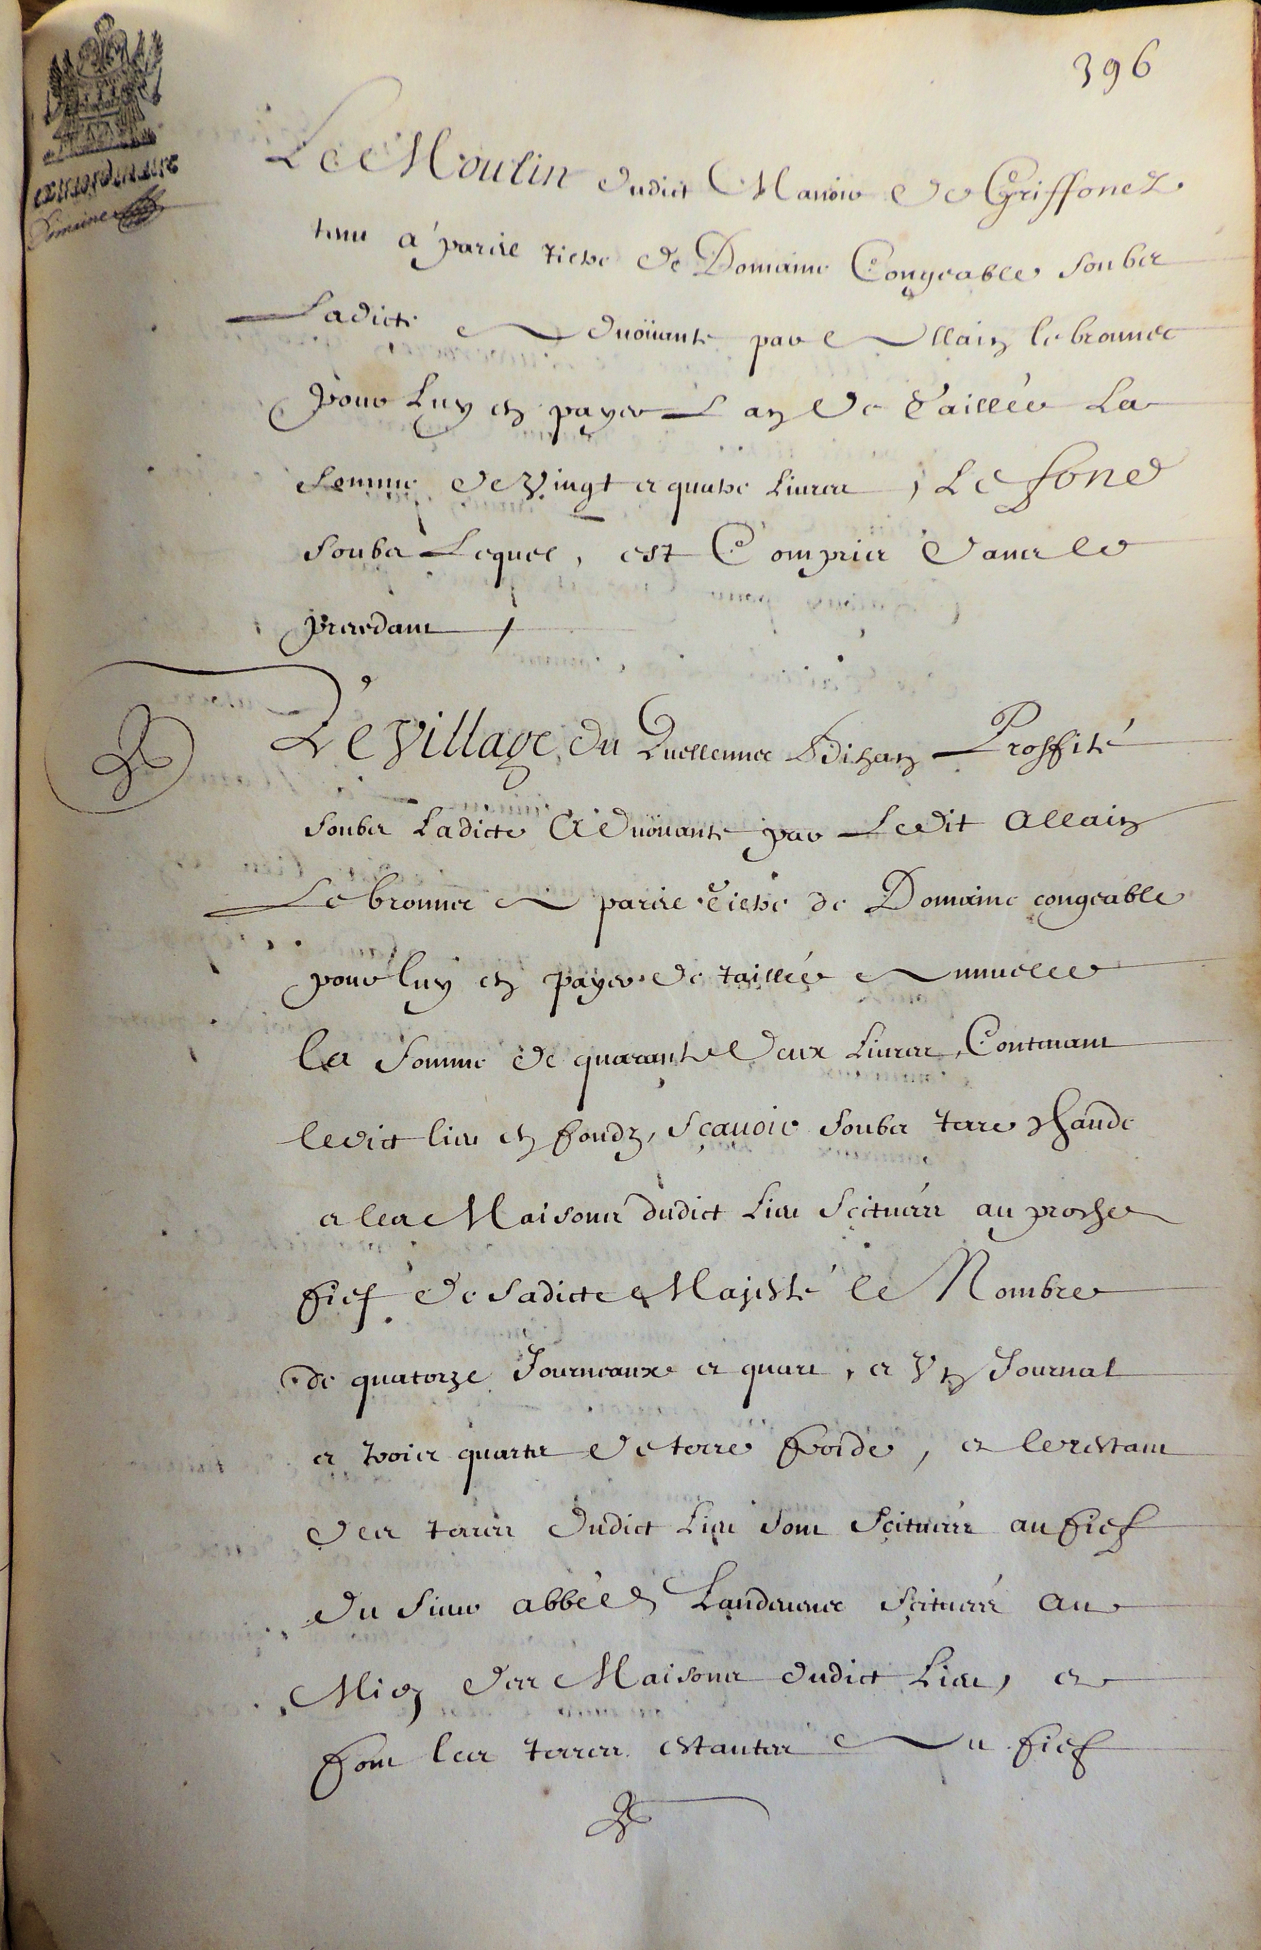 396
Le Moulin dudict Manoir de Griffonez
tenu a pareil tiltre de Domaine Congeable soubz
Ladicte Advoüante par Allain le bronnec
pour Luy en payer L'an de Taillée La
somme de vingt et quatre Livres, Le fond
soubz Lequel, est Compris dans le
precedant /
Le Village du Quellennec Prossité
soubz Ladicte Advoüante par Ledit Allain
Le bronnec A pareil tiltre de Domaine congeable
pour luy en payer de taillée Annuelle
La somme de quarante deux Livres, Contenant
ledict lieu en fondz, sçavoir soubz terre chaude
et les Maisons dudict Lieu scituées au proche
fief de sadicte Majesté le Nombre
de quatorze Journeaux et quart, et Vn Journal
et trois quarts de terre froide, et le restant
des terres dudict Lieu sont scituées au fief
du sieur abbé Landevenec scituées au
Midy des Maisons dudict Lieu, et
font les terres estantes Au fief